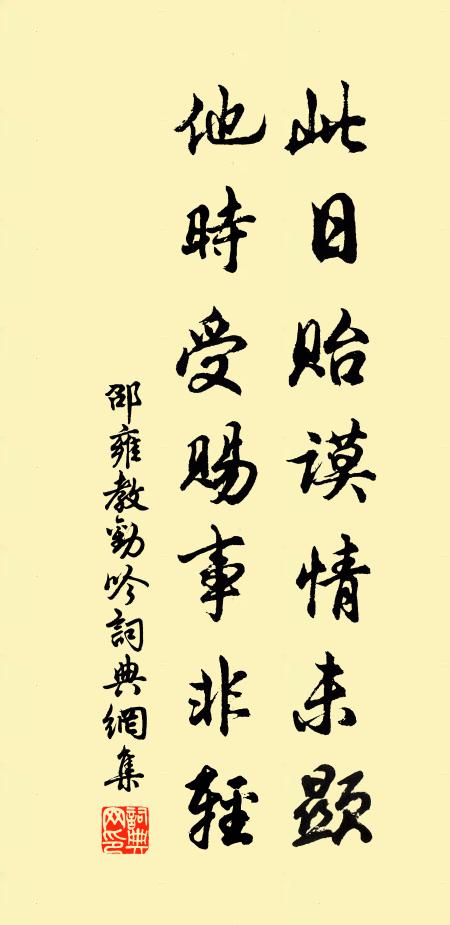 此日貽謨情未顯
他時受賜事非輕
邵雍教勸吟詞典網集
詞典網印